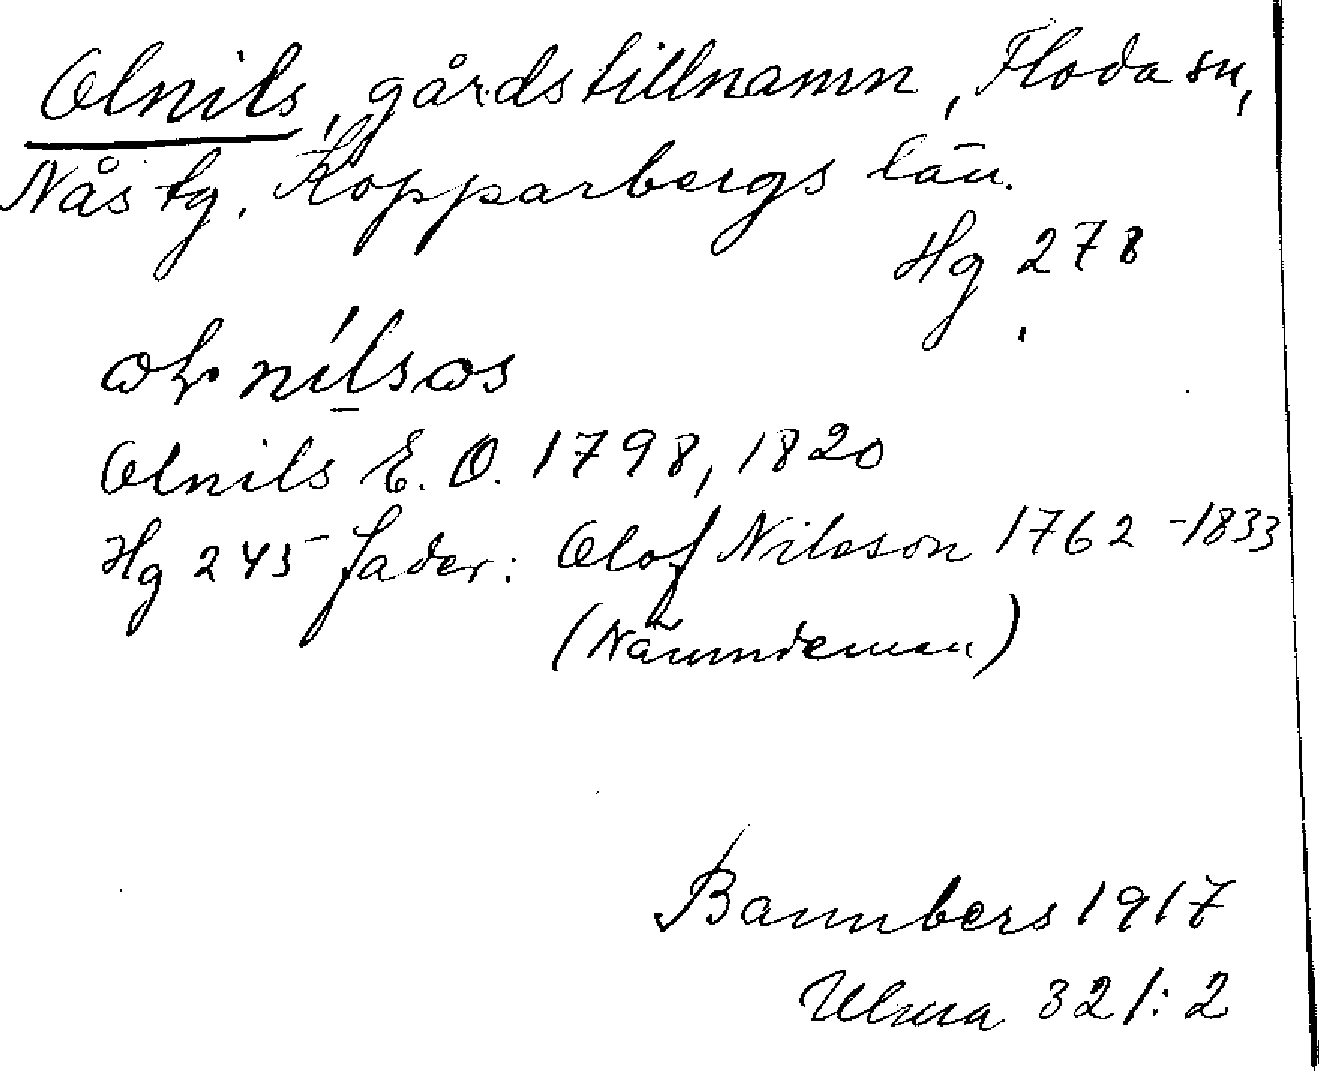 Olnils, gårdstillnamn, Floda sn,
Nås tg. Kopparbergs län.
Hg 278
Olnils E. O. 1798, 1820
Hg 245 fader: Olof Nilsson 1762-1833
(Nämndeman)
Bannbers 1917
Ulma 321:2